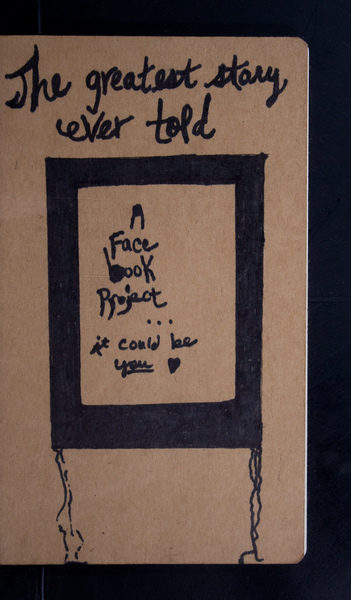 The greatest story
ever told
A
Face
book
Project
...
it could be
you ♥